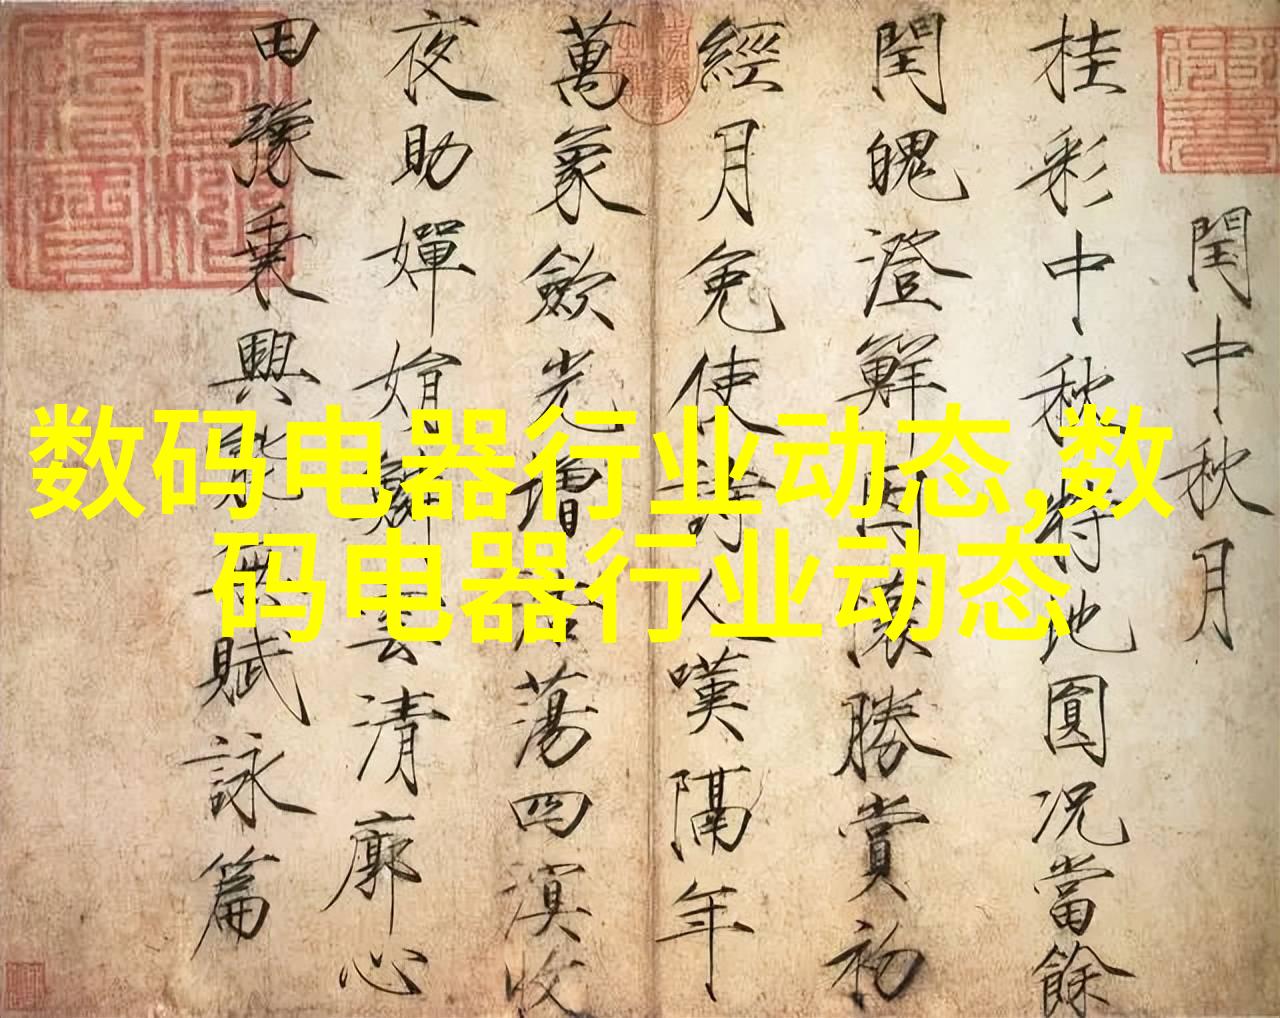 数码电器行业动态,数
码电器行业动态
閏中秋月
桂彩中秋特地圓況當餘
閏魄澄鮮因懷勝賞初
經月免使詩人嘆隔年
萬象斂光增浩蕩四溟收
夜助嬋娟鱗雲清廓心
田豫乗興能無賦詠篇